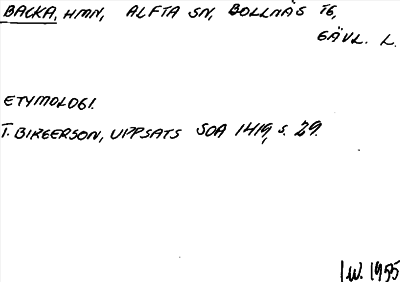 BACKA, HMN, ALFTA SN, BOLLNÄS TG,
GÄVL. L.
ETYMOLOGI.
T. BIRGERSON, UPPSATS SOA 1419, S. 29.
I.W. 1955